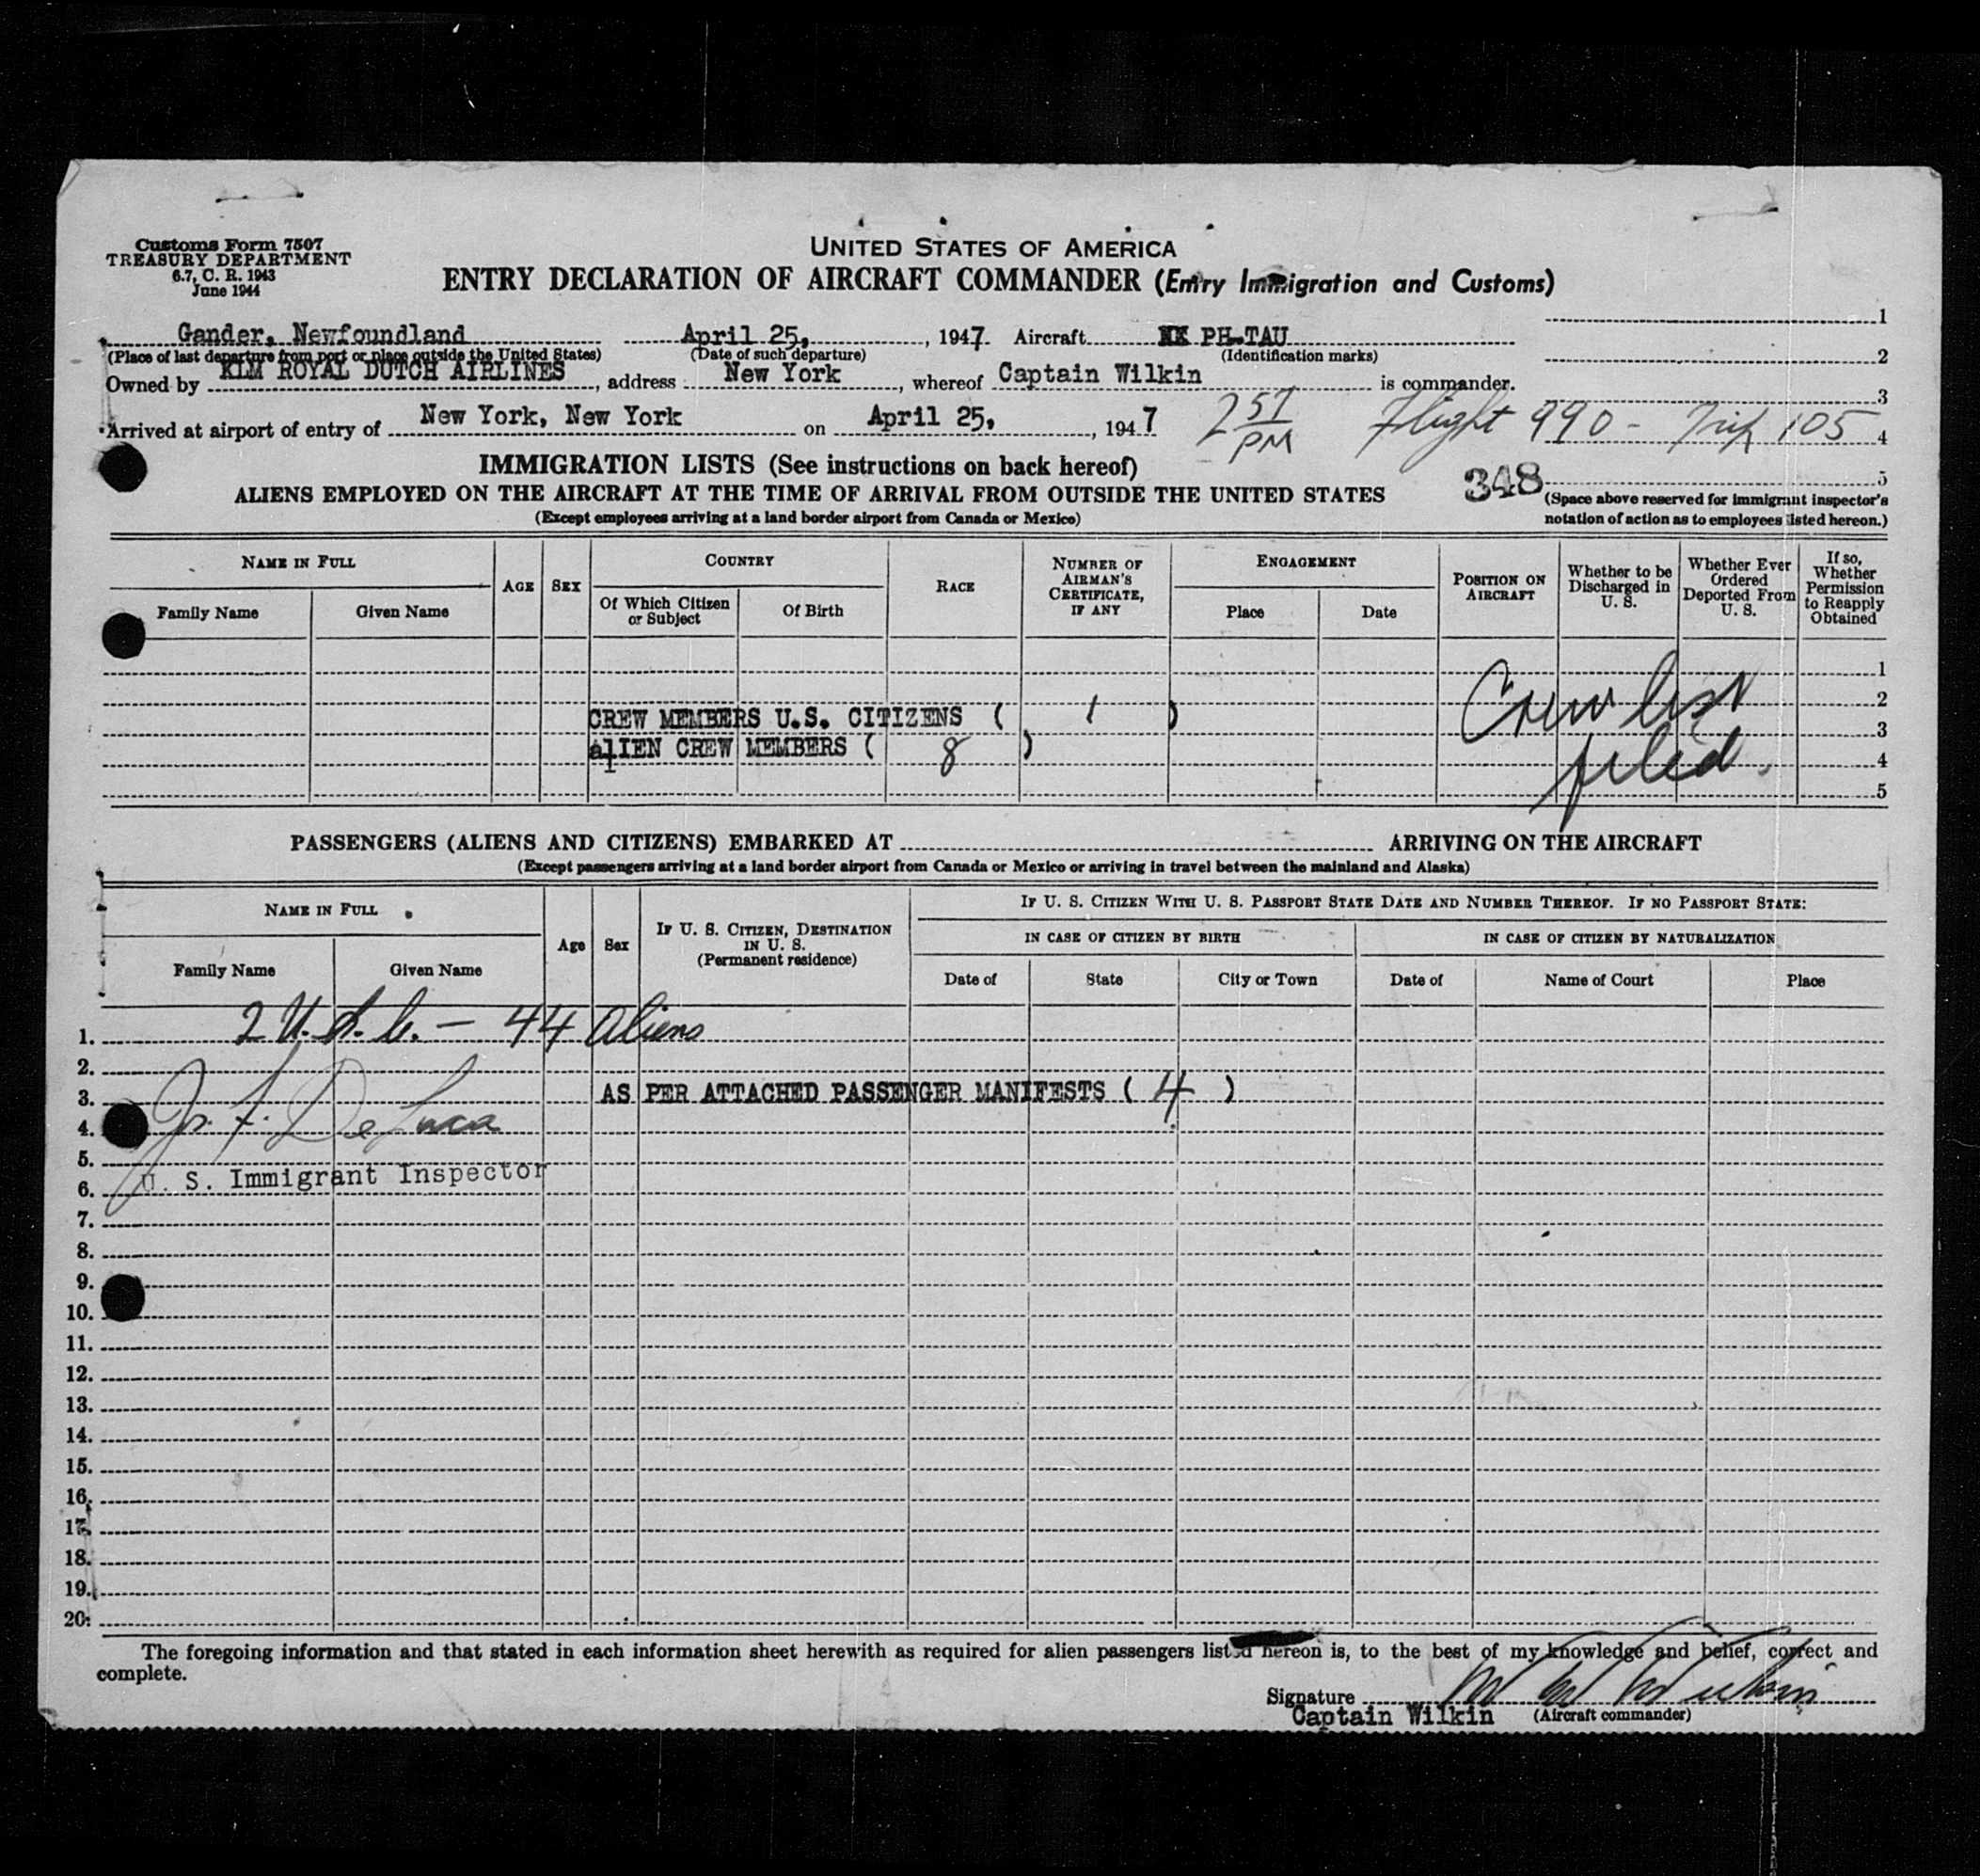 Customs Form 7507
TREASURY DEPARTMENT
6.7, C. R. 1943
June 1944
UNITED STATES OF AMERICA
ENTRY DECLARATION OF AIRCRAFT COMMANDER (Entry Immigration and Customs)
Gander, Newfoundland April 25, , 1947 Aircraft PH-TAU 1
(Place of last departure from port or place outside the United States) (Date of such departure) (Identification marks) 2
Owned by KLM ROYAL DUTCH AIRLINES , address New York , whereof Captain Wilkin is commander.
3
Arrived at airport of entry of New York, New York on April 25, , 1947 2 57 PM Flight 990 - Trip 105 4
IMMIGRATION LISTS (See instructions on back hereof)
348 5
ALIENS EMPLOYED ON THE AIRCRAFT AT THE TIME OF ARRIVAL FROM OUTSIDE THE UNITED STATES
(Except employees arriving at a land border airport from Canada or Mexico)
(Space above reserved for immigrant inspector's
notation of action as to employees listed hereon.)
NAME IN FULL
Family Name
Given Name
AGE
SEX
COUNTRY
Of Which Citizen
or Subject
Of Birth
RACE
NUMBER OF
AIRMAN'S
CERTIFICATE,
IF ANY
ENGAGEMENT
Place
Date
POSITION ON
AIRCRAFT
Whether to be
Discharged in
U. S.
Whether Ever
Ordered
Deported From
U. S.
If so,
Whether
Permission
to Reapply
Obtained
1
2
CREW MEMBERS U.S. CITIZENS ( 1 ) Crew list 3
aLIEN CREW MEMBERS ( 8 ) filed. 4
5
PASSENGERS (ALIENS AND CITIZENS) EMBARKED AT ARRIVING ON THE AIRCRAFT
(Except passengers arriving at a land border airport from Canada or Mexico or arriving in travel between the mainland and Alaska)
NAME IN FULL
Family Name
Given Name
Age
Sex
IF U. S. CITIZEN, DESTINATION
IN U. S.
(Permanent residence)
IF U. S. CITIZEN WITH U. S. PASSPORT STATE DATE AND NUMBER THEREOF. IF NO PASSPORT STATE:
IN CASE OF CITIZEN BY BIRTH
Date of
State
City or Town
IN CASE OF CITIZEN BY NATURALIZATION
Date of
Name of Court
Place
1. 2 U.S.C. - 44 Aliens
2.
3. AS PER ATTACHED PASSENGER MANIFESTS ( 4 )
4. De Luca
5.
6. U. S. Immigrant Inspector
7.
8.
9.
10.
11.
12.
13.
14.
15.
16.
17.
18.
19.
20.
The foregoing information and that stated in each information sheet herewith as required for alien passengers listed hereon is, to the best of my knowledge and belief, correct and
complete.
Signature
Captain Wilkin (Aircraft commander)